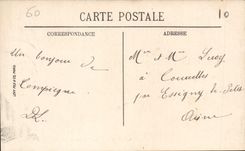 60
10
CARTE POSTALE
CORRESPONDANCE
ADRESSE
Un bonjour de
Compiègne
Mme et Mr Leroy
à
par Essigny-le-Petit
Aisne